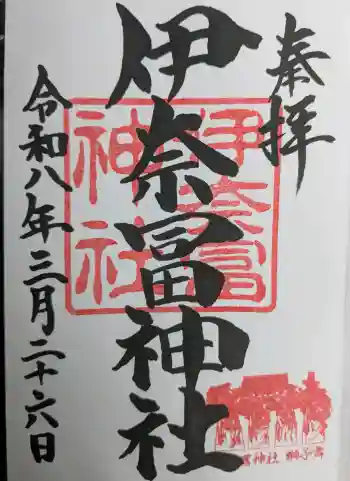 奉拝
伊奈冨神社
伊奈冨
神社
令和八年三月二十六日
神社 獅子